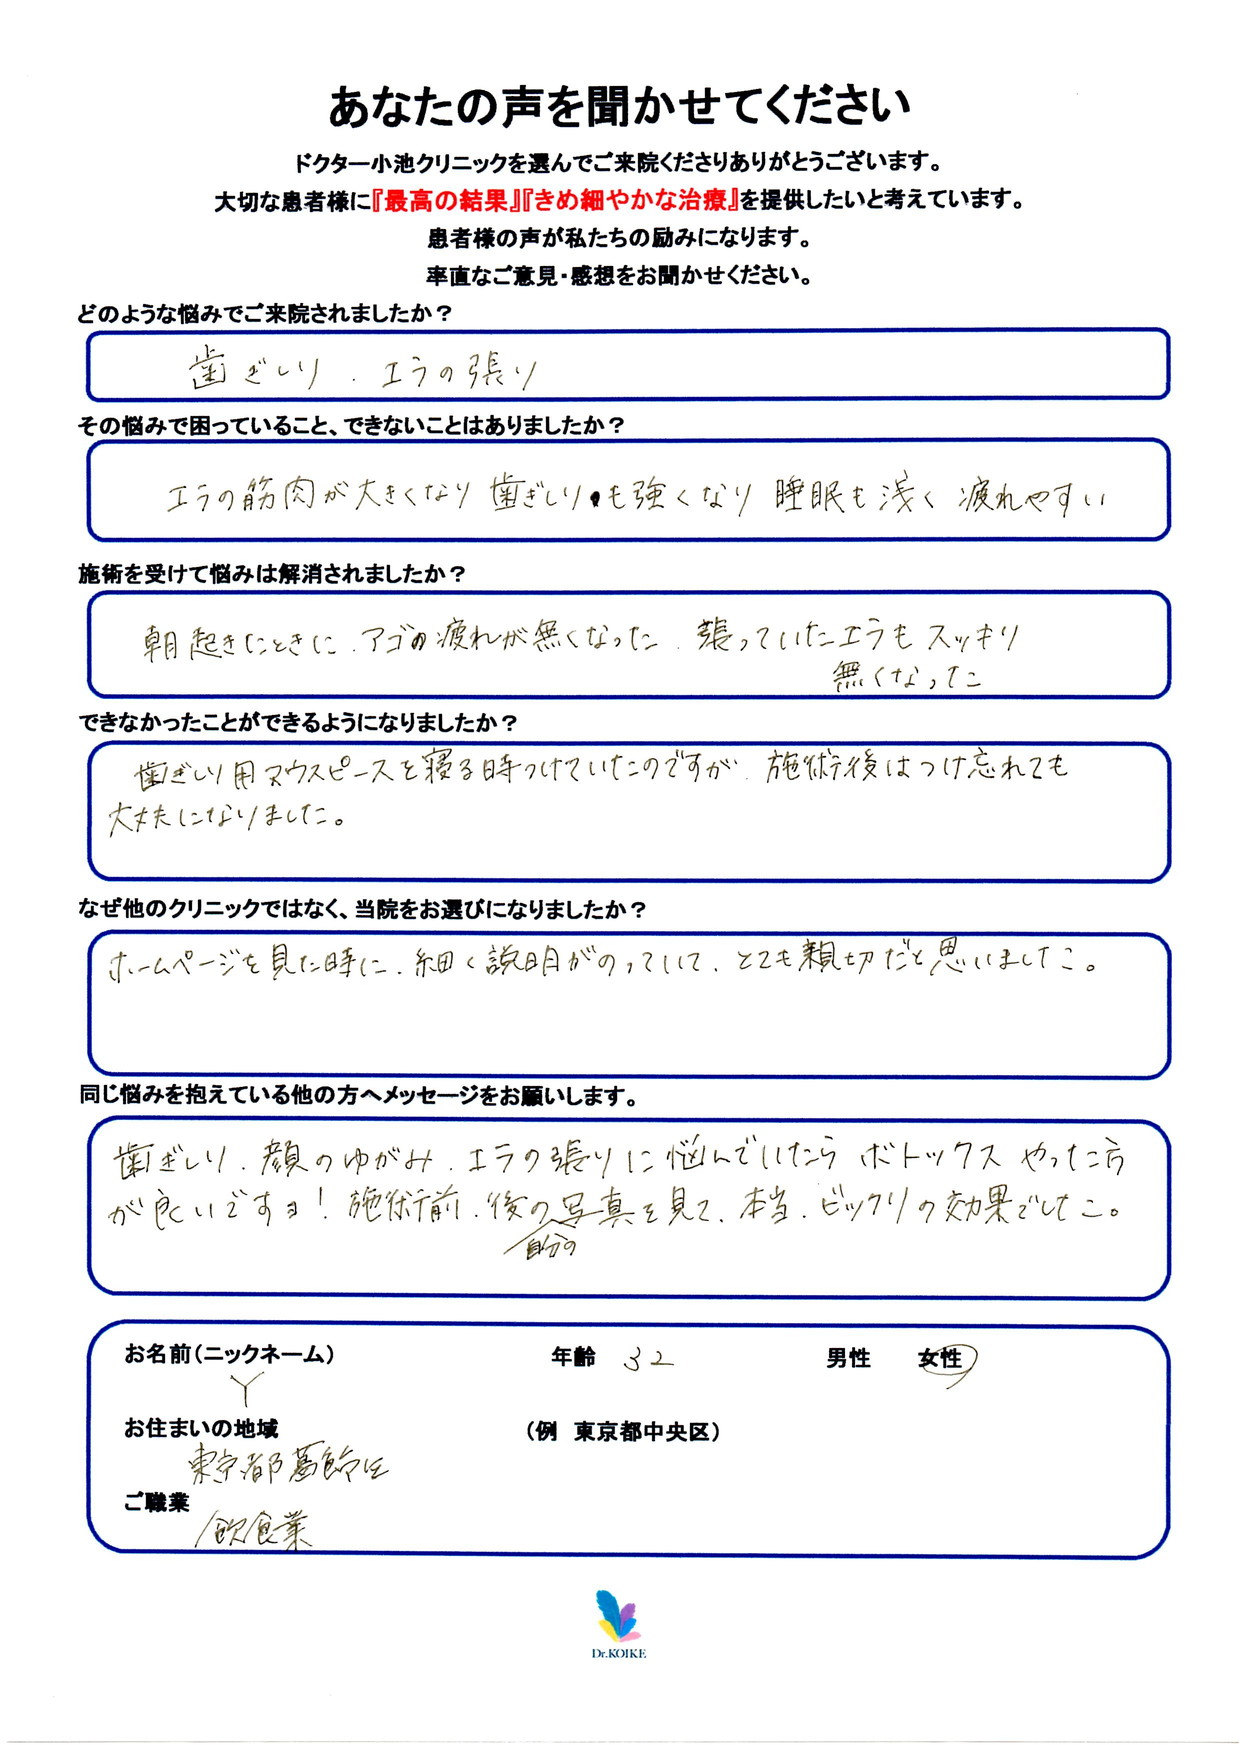 あなたの声を聞かせてください
ドクター小池クリニックを選んでご来院くださりありがとうございます。
大切な患者様に『最高の結果』『きめ細やかな治療』を提供したいと考えています。
患者様の声が私たちの励みになります。
率直なご意見・感想をお聞かせください。
どのような悩みでご来院されましたか？
歯ぎしり．エラの張り
その悩みで困っていること、できないことはありましたか？
エラの筋肉が大きくなり 歯ぎしりも強くなり 睡眠も浅く 疲れやすい
施術を受けて悩みは解消されましたか？
朝起きたときに．アゴの疲れが無くなった．張っていたエラもスッキリ
無くなった
できなかったことができるようになりましたか？
歯ぎしり用マウスピースを寝る時つけていたのですが．施術後はつけ忘れても
大丈夫になりました。
なぜ他のクリニックではなく、当院をお選びになりましたか？
ホームページを見た時に．細く説明がのっていて．とても親切だと思いました。
同じ悩みを抱えている他の方へメッセージをお願いします。
歯ぎしり．顔のゆがみ．エラの張りに悩んでいたら ボトックス やった方
が良いですョ！施術前．後の写真を見て．本当．ビックリの効果でした。
自分の
お名前（ニックネーム） 年齢 32 男性 女性
Y
お住まいの地域 （例 東京都中央区）
東京都葛飾区
ご職業
飲食業
Dr.KOIKE